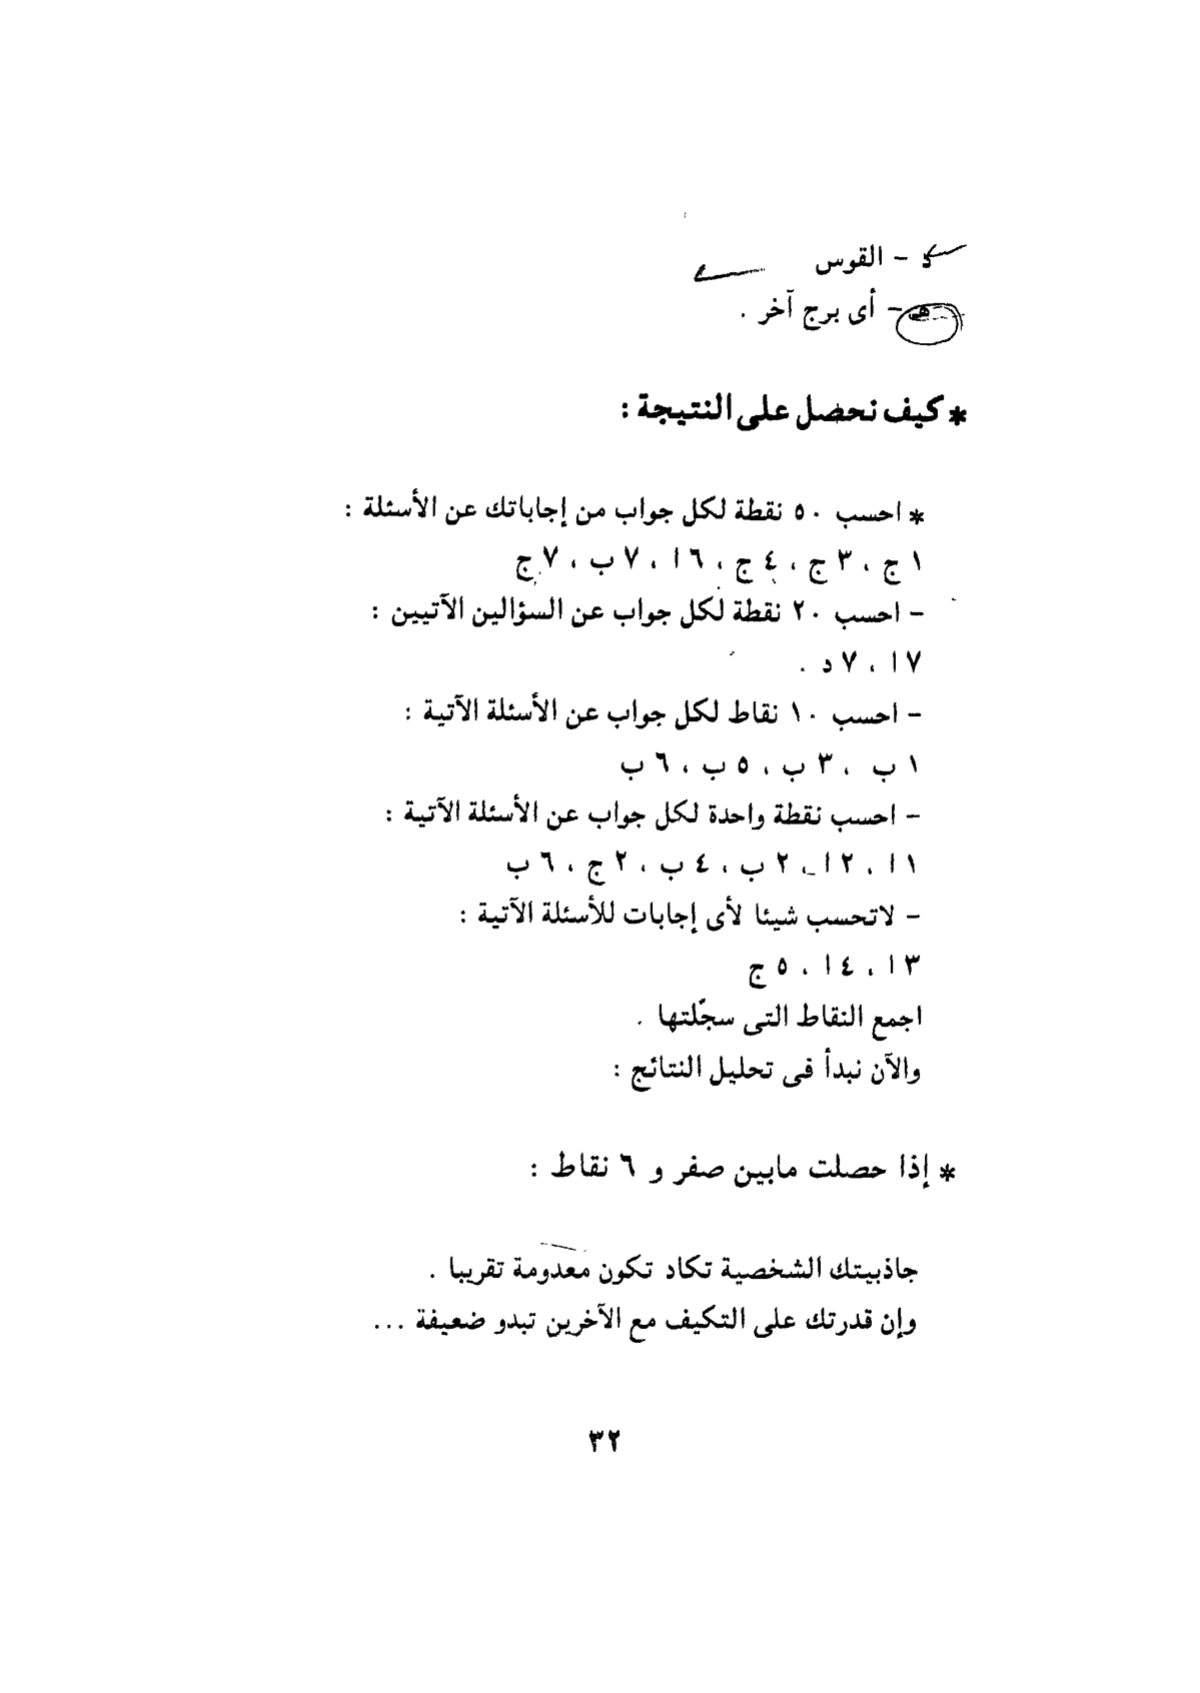 د – القوس
هـ – أى برج آخر .
* كيف نحصل على النتيجة :
* احسب ٥٠ نقطة لكل جواب من إجاباتك عن الأسئلة :
١ ج ، ٣ ج ، ٤ ج ، ٦ ا ، ٧ ب ، ٧ ج
– احسب ٢٠ نقطة لكل جواب عن السؤالين الآتيين :
٧ ا ، ٧ د .
– احسب ١٠ نقاط لكل جواب عن الأسئلة الآتية :
١ ب ، ٣ ب ، ٥ ب ، ٦ ب
– احسب نقطة واحدة لكل جواب عن الأسئلة الآتية :
١ ا ، ٢ ا ، ٢ ب ، ٤ ب ، ٢ ج ، ٦ ب
– لاتحسب شيئا لأى إجابات للأسئلة الآتية :
٣ ا ، ٤ ا ، ٥ ج
اجمع النقاط التى سجّلتها .
والآن نبدأ فى تحليل النتائج :
* إذا حصلت مابين صفر و ٦ نقاط :
جاذبيتك الشخصية تكاد تكون معدومة تقريبا .
وإن قدرتك على التكيف مع الآخرين تبدو ضعيفة ...
٣٢